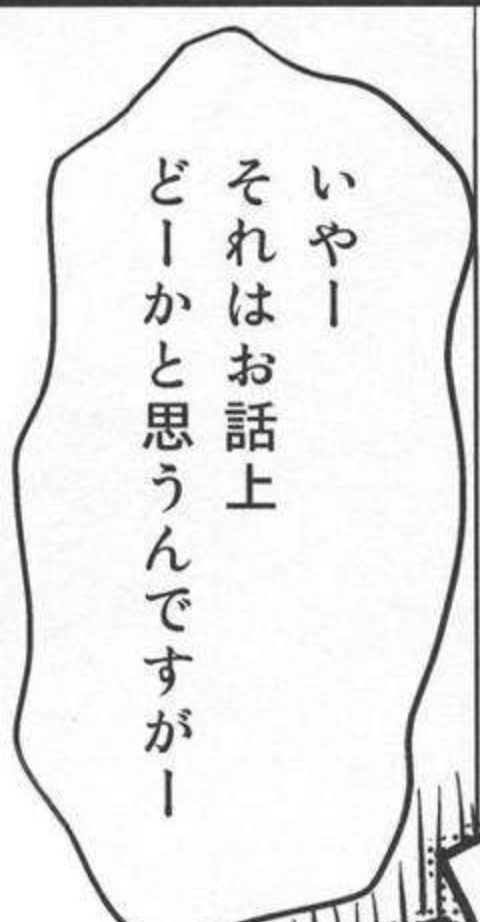 いやー
それはお話上
どーかと思うんですがー